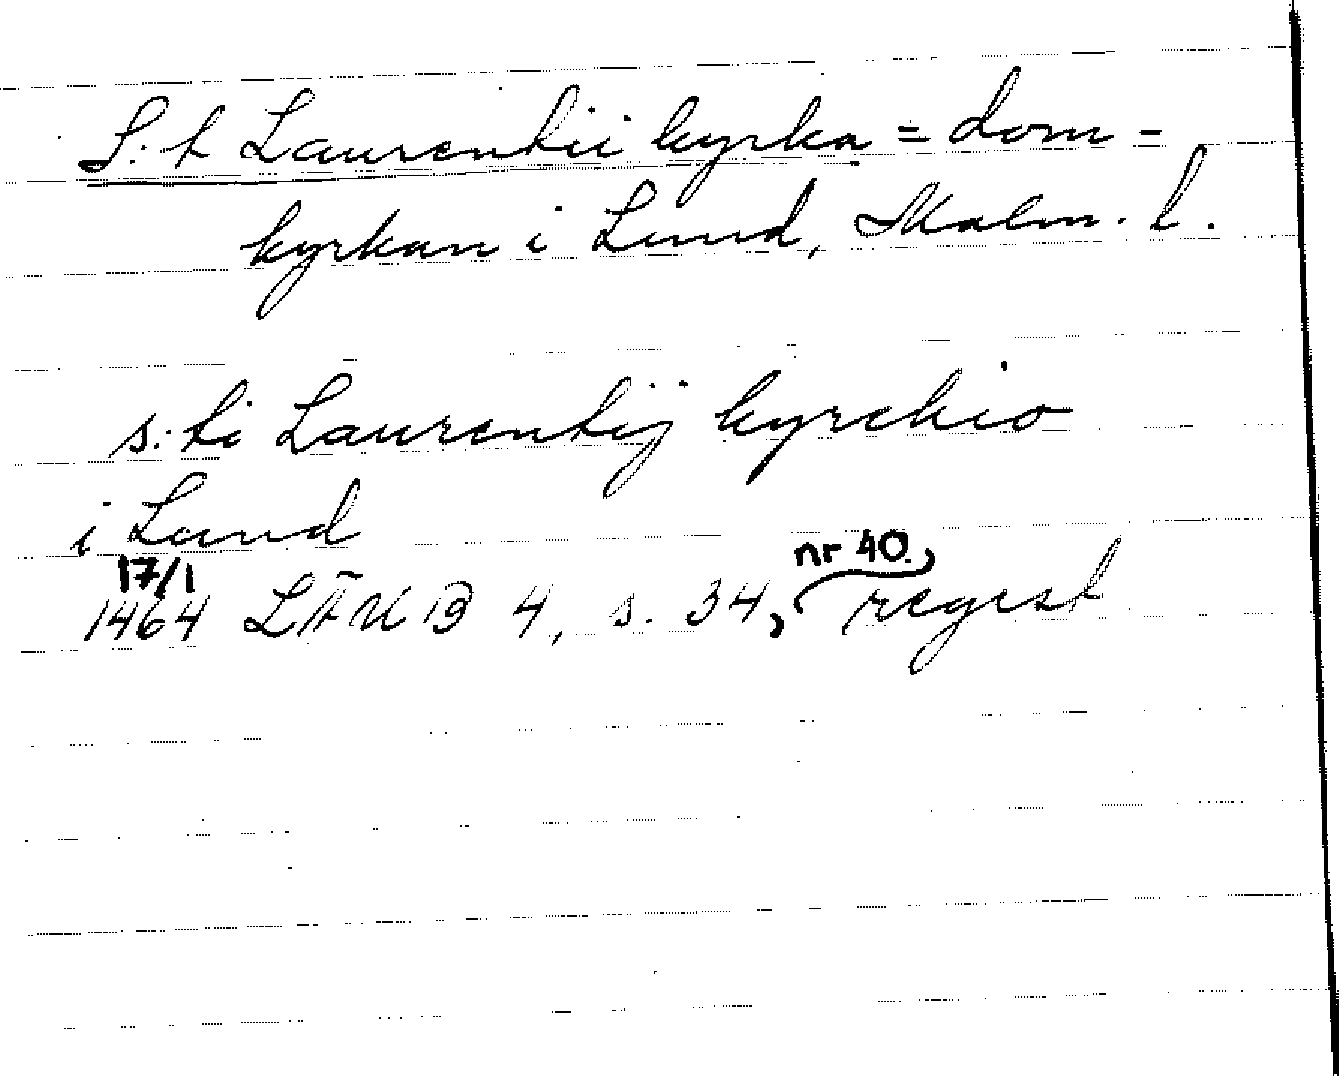 S:t Laurentii kyrka = dom-
kyrkan i Lund, Malm. l.
s:ti Laurentij kyrckio
i Lund
17/1 nr 40.
1464 LÄUB 4, s. 34, regest